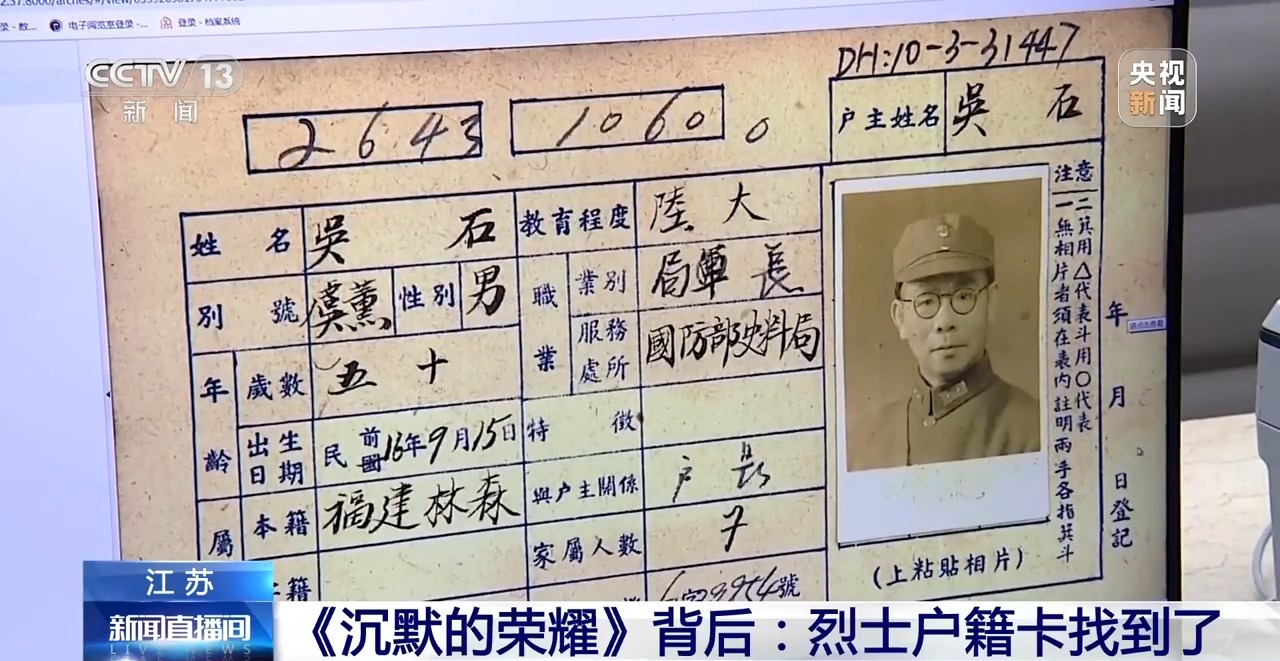 电子阅览室登录-...
登录 - 档案系统
CCTV 13
新闻
央视
新闻
DH:10-3-31447
2643
1060
0
户主姓名 吳石
姓名 吳石 教育程度 陸大
別號 虞薰 性別 男 職業 業別 局軍長
服務處所 國防部史料局
年齡 歲數 五十
出生日期 民前國16年9月15日 特徵
屬 本籍 福建林森 與户主關係 户長
家屬人數 7
籍
注意 一無相片者須在表內註明兩手各指箕斗
二箕用△代表斗用〇代表
年 月 日登記
(上粘貼相片)
江苏
新闻直播间
LIVE NEWS
《沉默的荣耀》背后：烈士户籍卡找到了